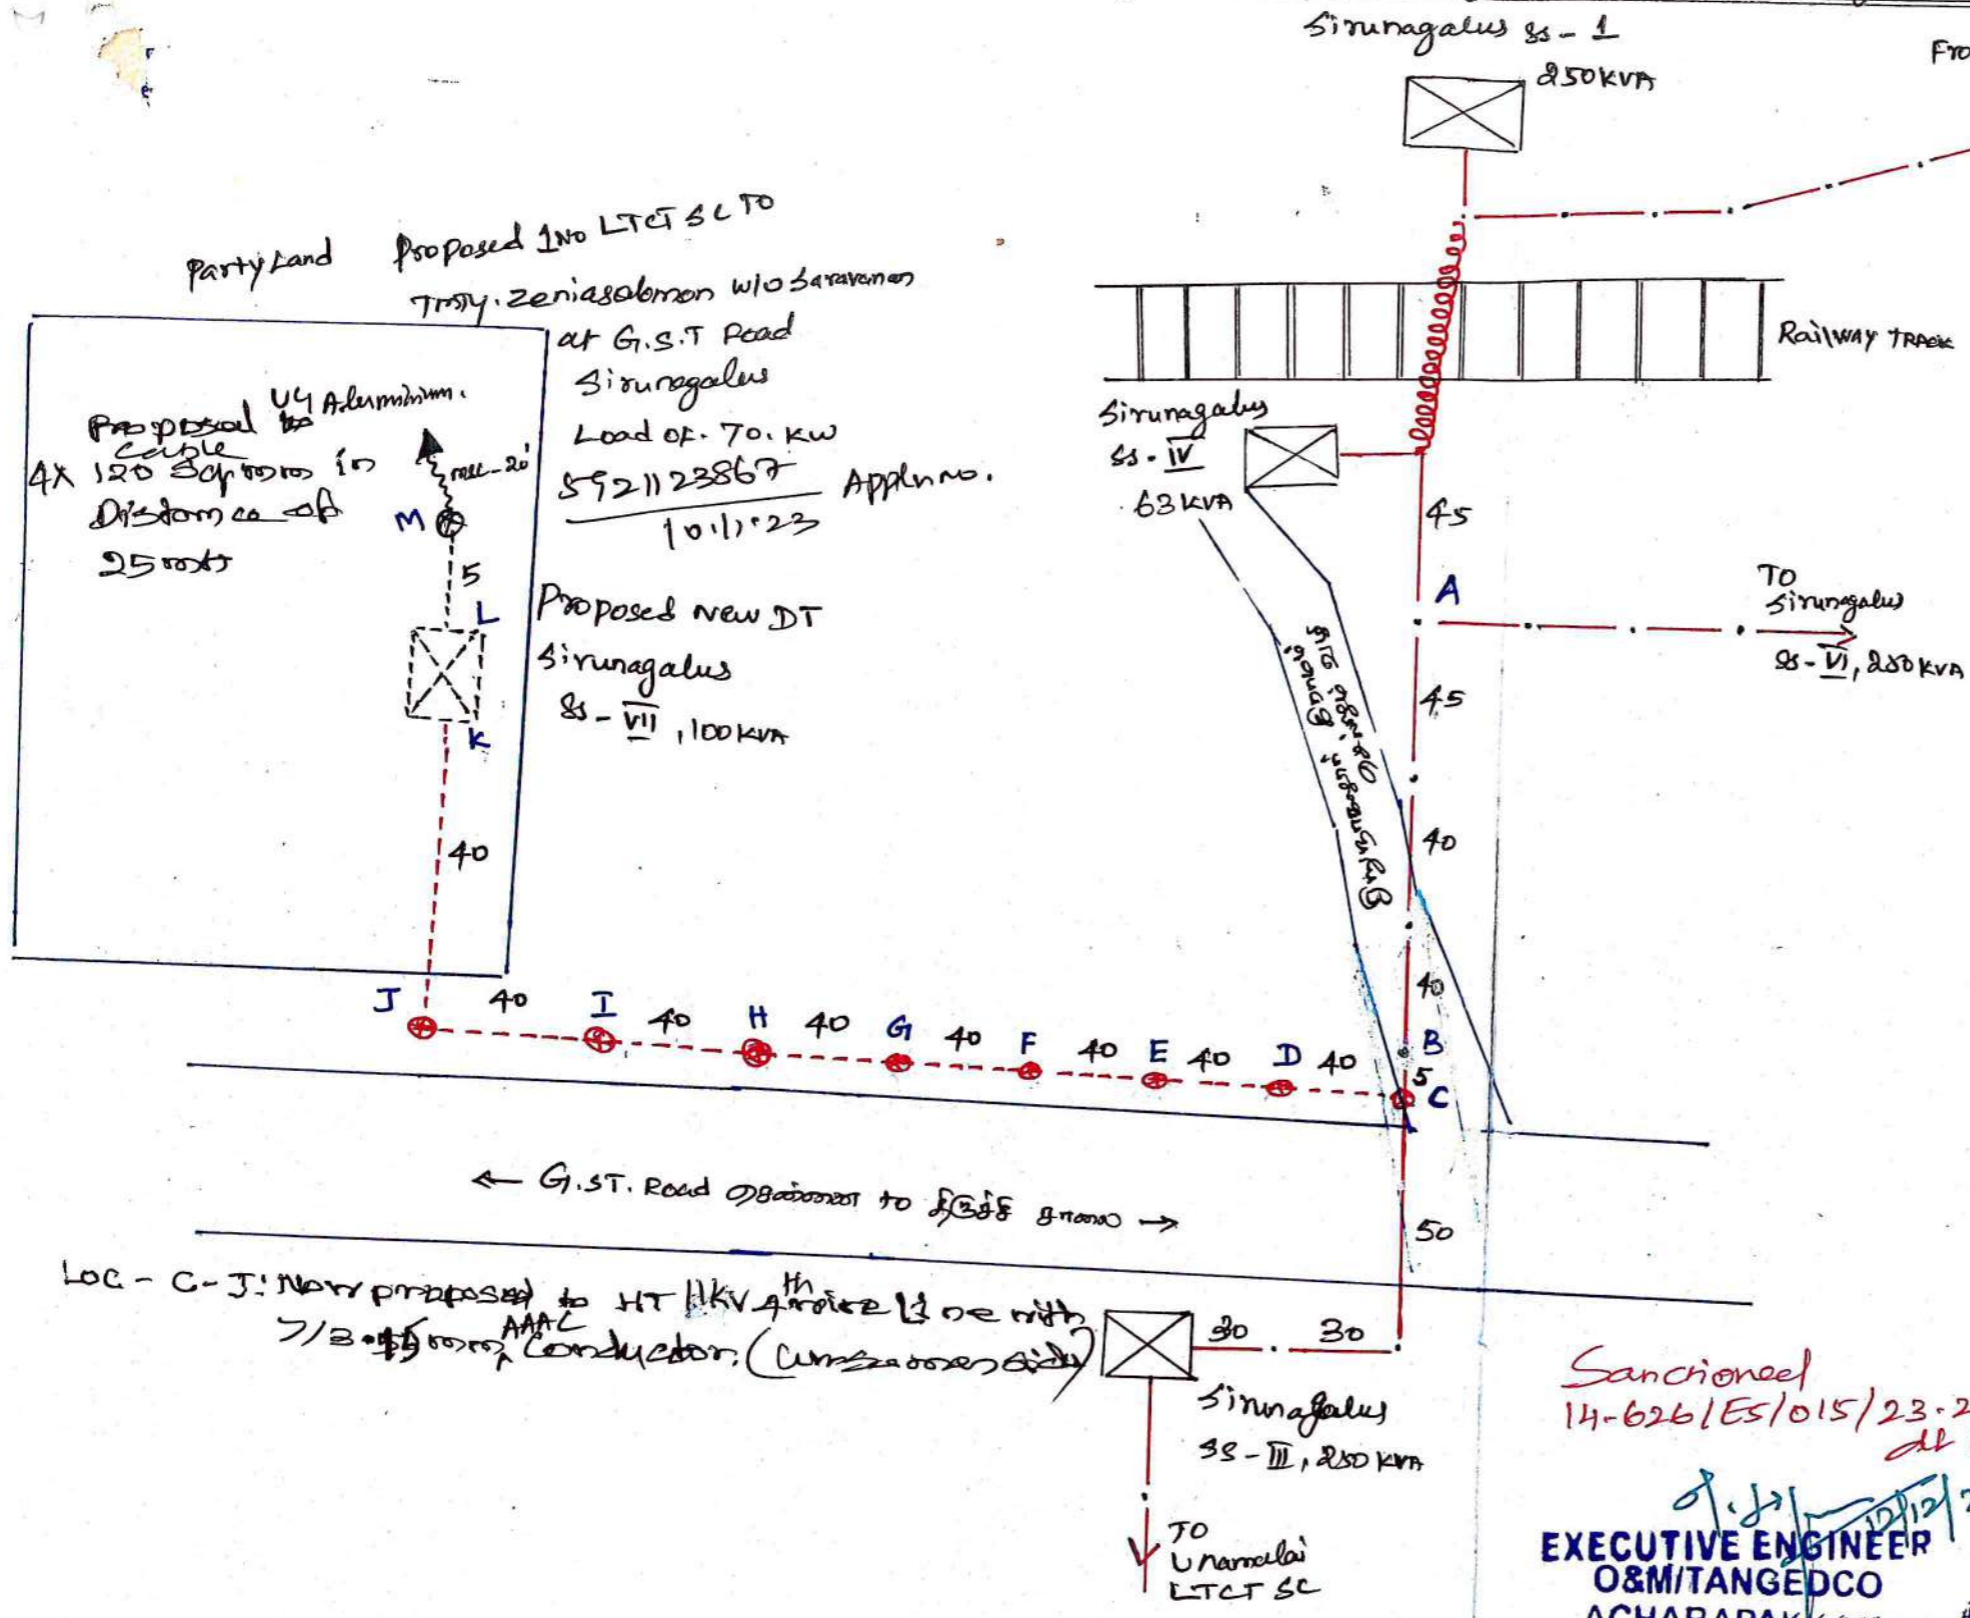 Sirunagalur SS-1
250KVA
Fro
Party Land
Proposed 1No LTCT SC TO
Tmty. Zeniasolomon w/o Saravanan
at G.S.T Road
Sirunagalur
Load of. 70. KW
5921123867 Appln no.
10.11.23
UG Aluminium.
Proposed
Cable
4X 120 Sqmm in
Distance of
25 mts
M
5
L
K
Proposed New DT
Sirunagalur
SS-VII, 100KVA
40
Railway TRACK
Sirunagalur
SS-IV
63 KVA
45
A
TO
Sirunagalur
SS-VI, 250KVA
45
40
40
B
5
C
J 40 I 40 H 40 G 40 F 40 E 40 D 40
← G.ST. Road சென்னை to திருச்சி சாலை →
50
LOC - C-J: Now proposed to HT 11KV 4th wire line with
AAAC
Conductor.
30 30
Sirunagalur
SS-III, 250 KVA
TO
Unamalai
LTCT SC
Sanctioned
14-626/ES/015/23-2
dt
12/12/2
EXECUTIVE ENGINEER
O&M/TANGEDCO